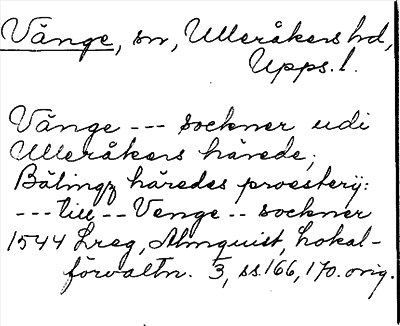 Vänge, sn, Ulleråkers hd,
Upps. l.
Vänge --- sockner udi
Ulleråkers härede;
Bälingz häredes proesterij:
--- till -- Venge -- sockner
1544 Lreg, Almquist, Lokal-
förvaltn. 3, ss. 166, 170. orig.